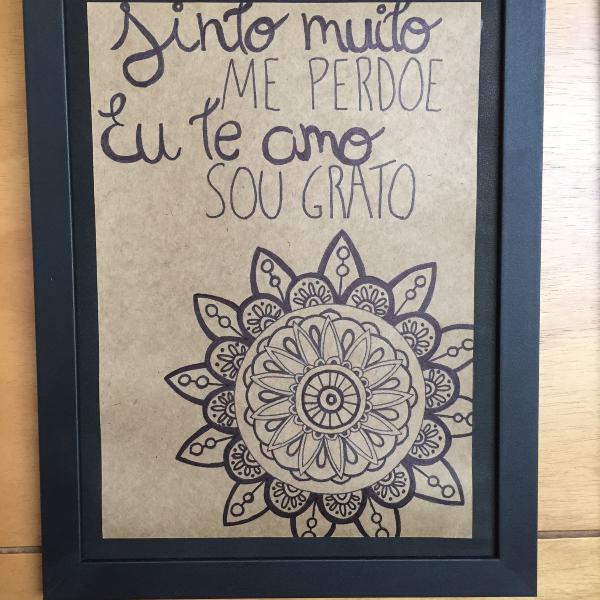 Sinto muito
ME PERDOE
Eu te amo
SOU GRATO